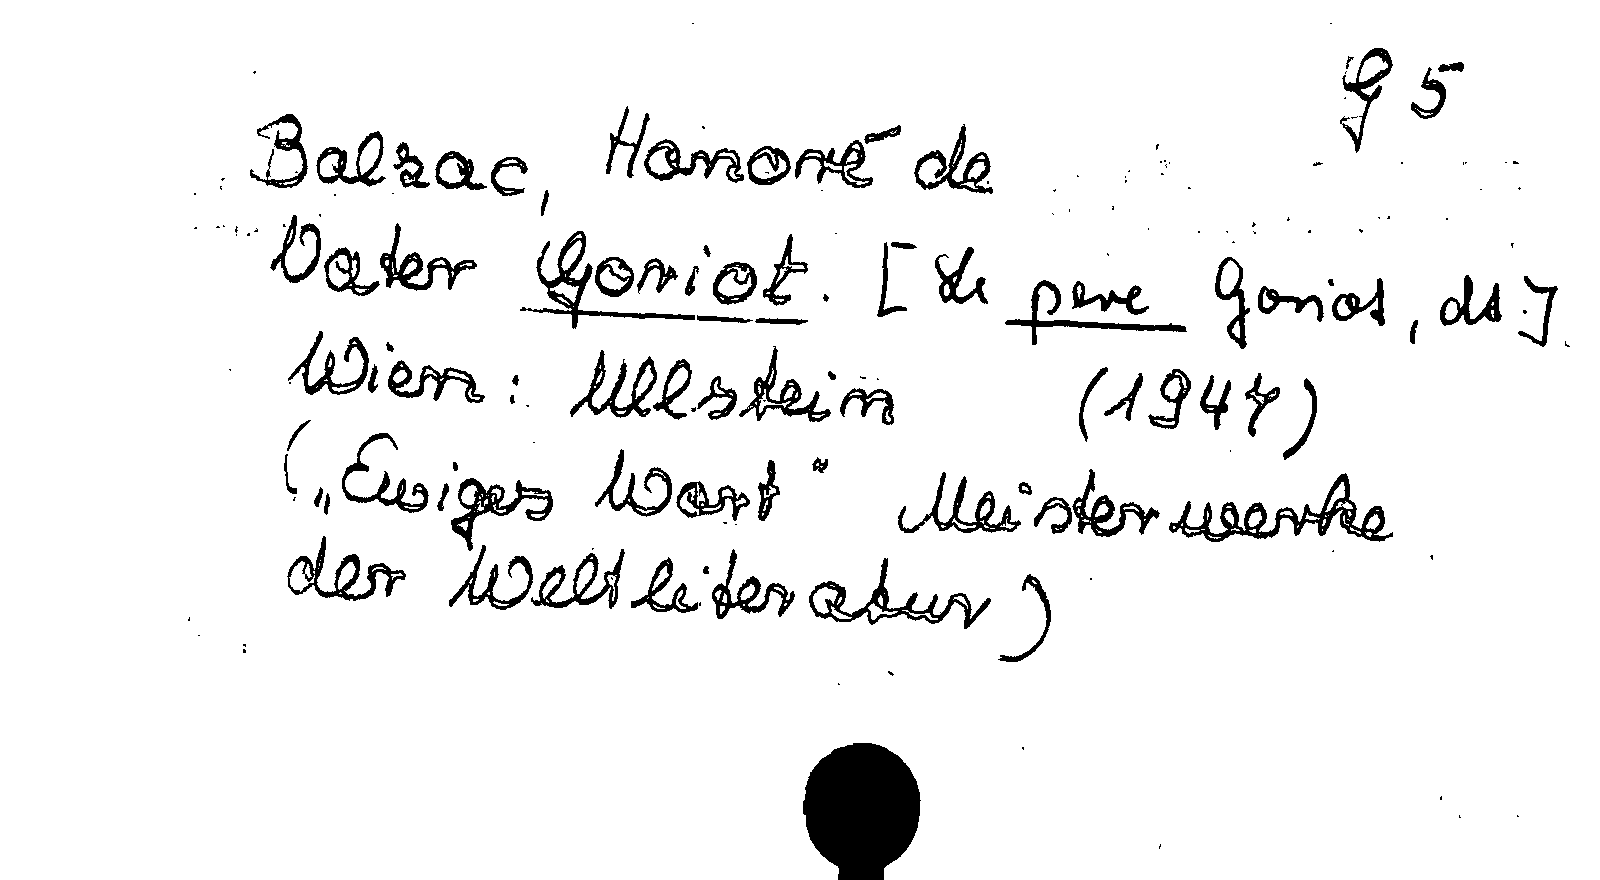 G 5
Balzac, Honoré de
Vater Goriot. [Le pere Goriot, dt.]
Wien: Ullstein (1947)
(„Ewiges Wort" Meisterwerke
der Weltliteratur)